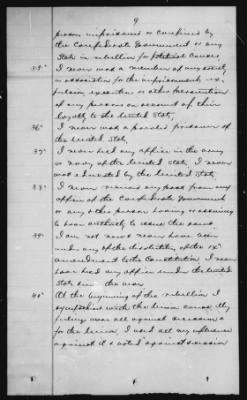 9
person imprisoned or confined by
the Confederate Government or any
State in rebellion for political causes
35" I never was a member of any society
or association for the imprisonment, ex-
pulsion, execution or other persecution
of any persons on account of their
loyalty to the United States
36" I never was a paroled prisoner of
the United States
37" I never held any office in the army
or navy of the United States, I never
was educated by the United States
38" I never received any pass from any
officer of the Confederate Government
or any other person having or assuming
to have authority to issue the same.
39" I am not now & never have been
under any of the disabilities of the 14"
amendment to the Constitution I never
have held any office under the United
States since the war
40" At the beginning of the rebellion I
sympathized with the Union cause. My
feelings were all against secession &
for the Union, I used all my influence
against it & voted against secession